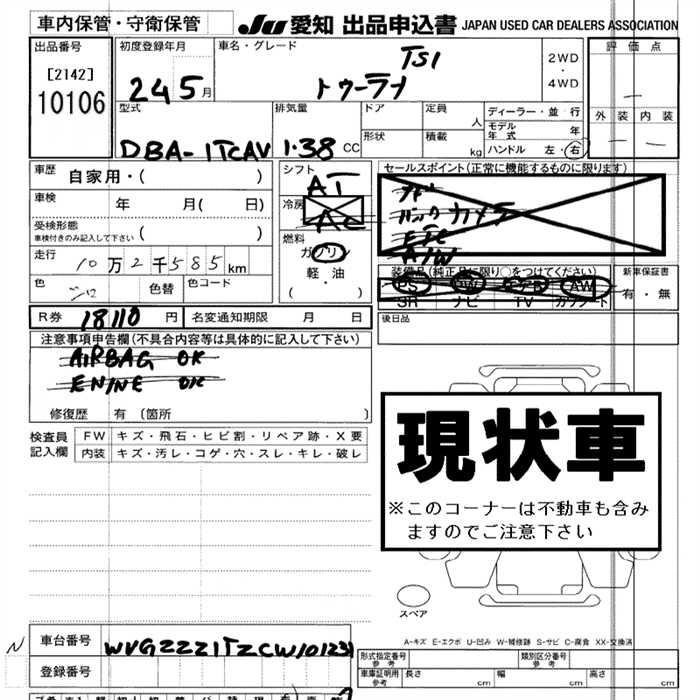 車内保管・守衛保管
JU 愛知 出品申込書 JAPAN USED CAR DEALERS ASSOCIATION
出品番号
[2142]
10106
初度登録年月
24 5月
車名・グレード
TSI
トゥーラン
2WD
・
4WD
評価点
外装 内装
型式
DBA-1TCAV
排気量
1.38 CC
ドア
形状
定員
人
積載
kg
ディーラー・並行
モデル年式 年
ハンドル 左・右
車歴 自家用・( )
車検 年 月( 日)
受検形態
車検付きのみ記入して下さい ( )
走行 10万2千585km
色 シロ 色替 色コード
R券 18110 円 名変通知期限 月 日
シフト
AT
冷房
AC
燃料
ガソリン
軽・油
( ・ )
セールスポイント(正常に機能するものに限ります)
ナビ
バックカメラ
ETC
A/W
装備品(純正品に限り○をつけてください)
PS PW エアB AW
SR ナビ TV
新車保証書
有・無
後日品
注意事項申告欄(不具合内容等は具体的に記入して下さい)
AIRBAG OK
ENINE OK
修復歴 有 〔箇所 〕
検査員記入欄
FW キズ・飛石・ヒビ割・リペア跡・X要
内装 キズ・汚レ・コゲ・穴・スレ・キレ・破レ
現状車
※このコーナーは不動車も含み
ますのでご注意下さい
スペア
A-キズ E-エクボ U-凹み W-補修跡 S-サビ C-腐食 XX-交換済
N
車台番号 WVGZZZ1TZCW101231
登録番号
形式指定番号 参考
類別区分番号 参考
車庫証明用 参考 長さ cm 幅 cm 高さ cm